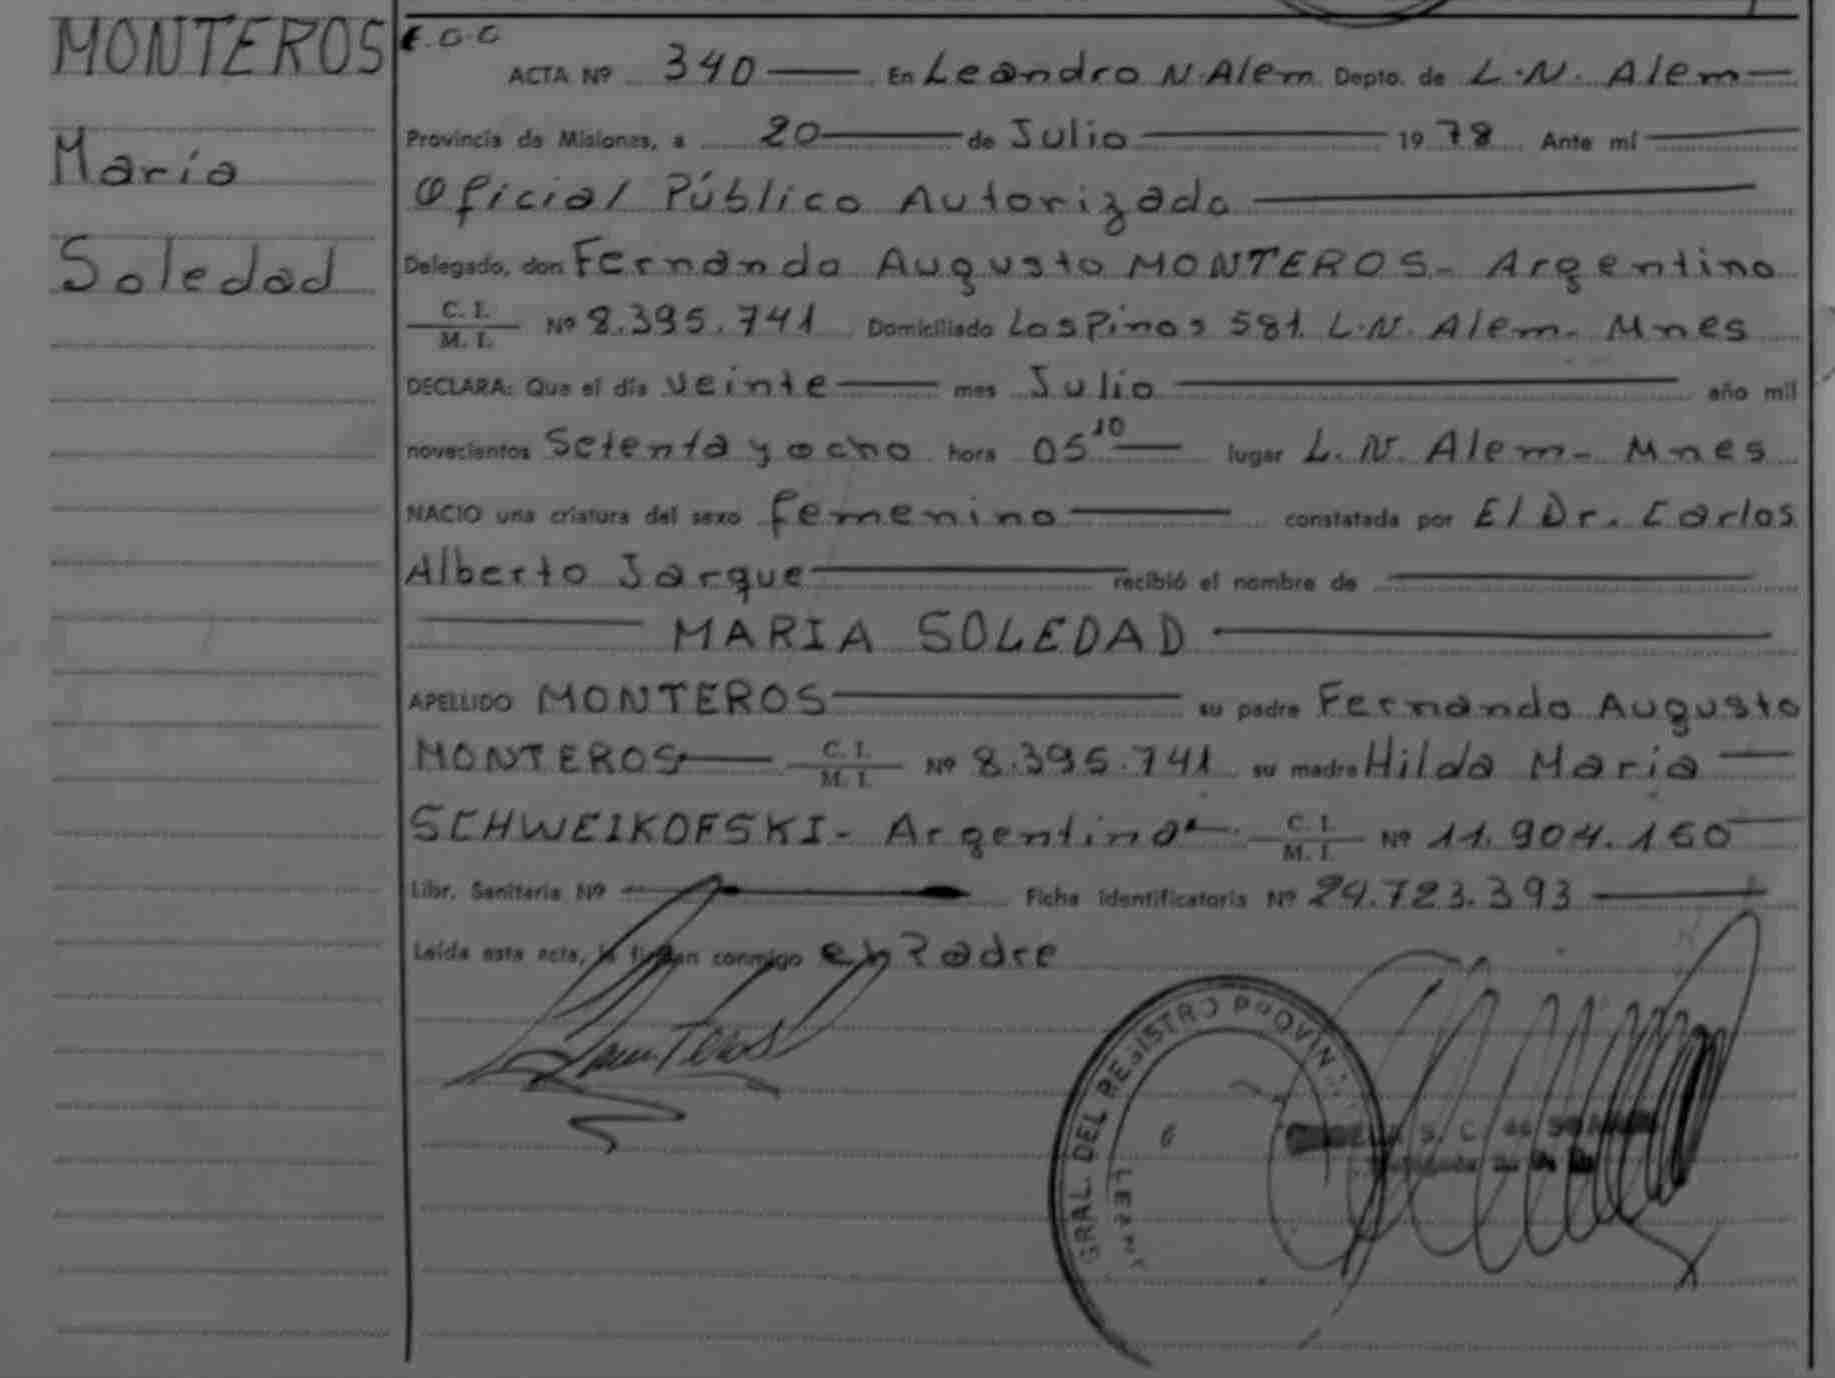 MONTEROS
Maria
Soledad
E.O.C
ACTA Nº 340 En Leandro N. Alem Depto. de L.N. Alem
Provincia de Misiones, a 20 de Julio 1978 Ante mí
Oficial Público Autorizado
Delegado, don Fernando Augusto MONTEROS - Argentino
C. I. / M. I. Nº 8.395.741 Domiciliado Los Pinos 581. L.N. Alem - Mnes
DECLARA: Que el día veinte mes Julio año mil
novecientos Setenta y ocho hora 05 10 lugar L. N. Alem - Mnes
NACIO una criatura del sexo femenino constatada por El Dr. Carlos
Alberto Jarque recibió el nombre de
MARIA SOLEDAD
APELLIDO MONTEROS su padre Fernando Augusto
MONTEROS C. I. / M. I. Nº 8.395.741 su madre Hilda Maria
SCHWEIKOFSKI - Argentina C. I. / M. I. Nº 11.904.160
Libr. Sanitaria Nº Ficha identificatoria Nº 24.723.393
Leída esta acta, la firman conmigo el Padre
GRAL. DEL REGISTRO PROVIN